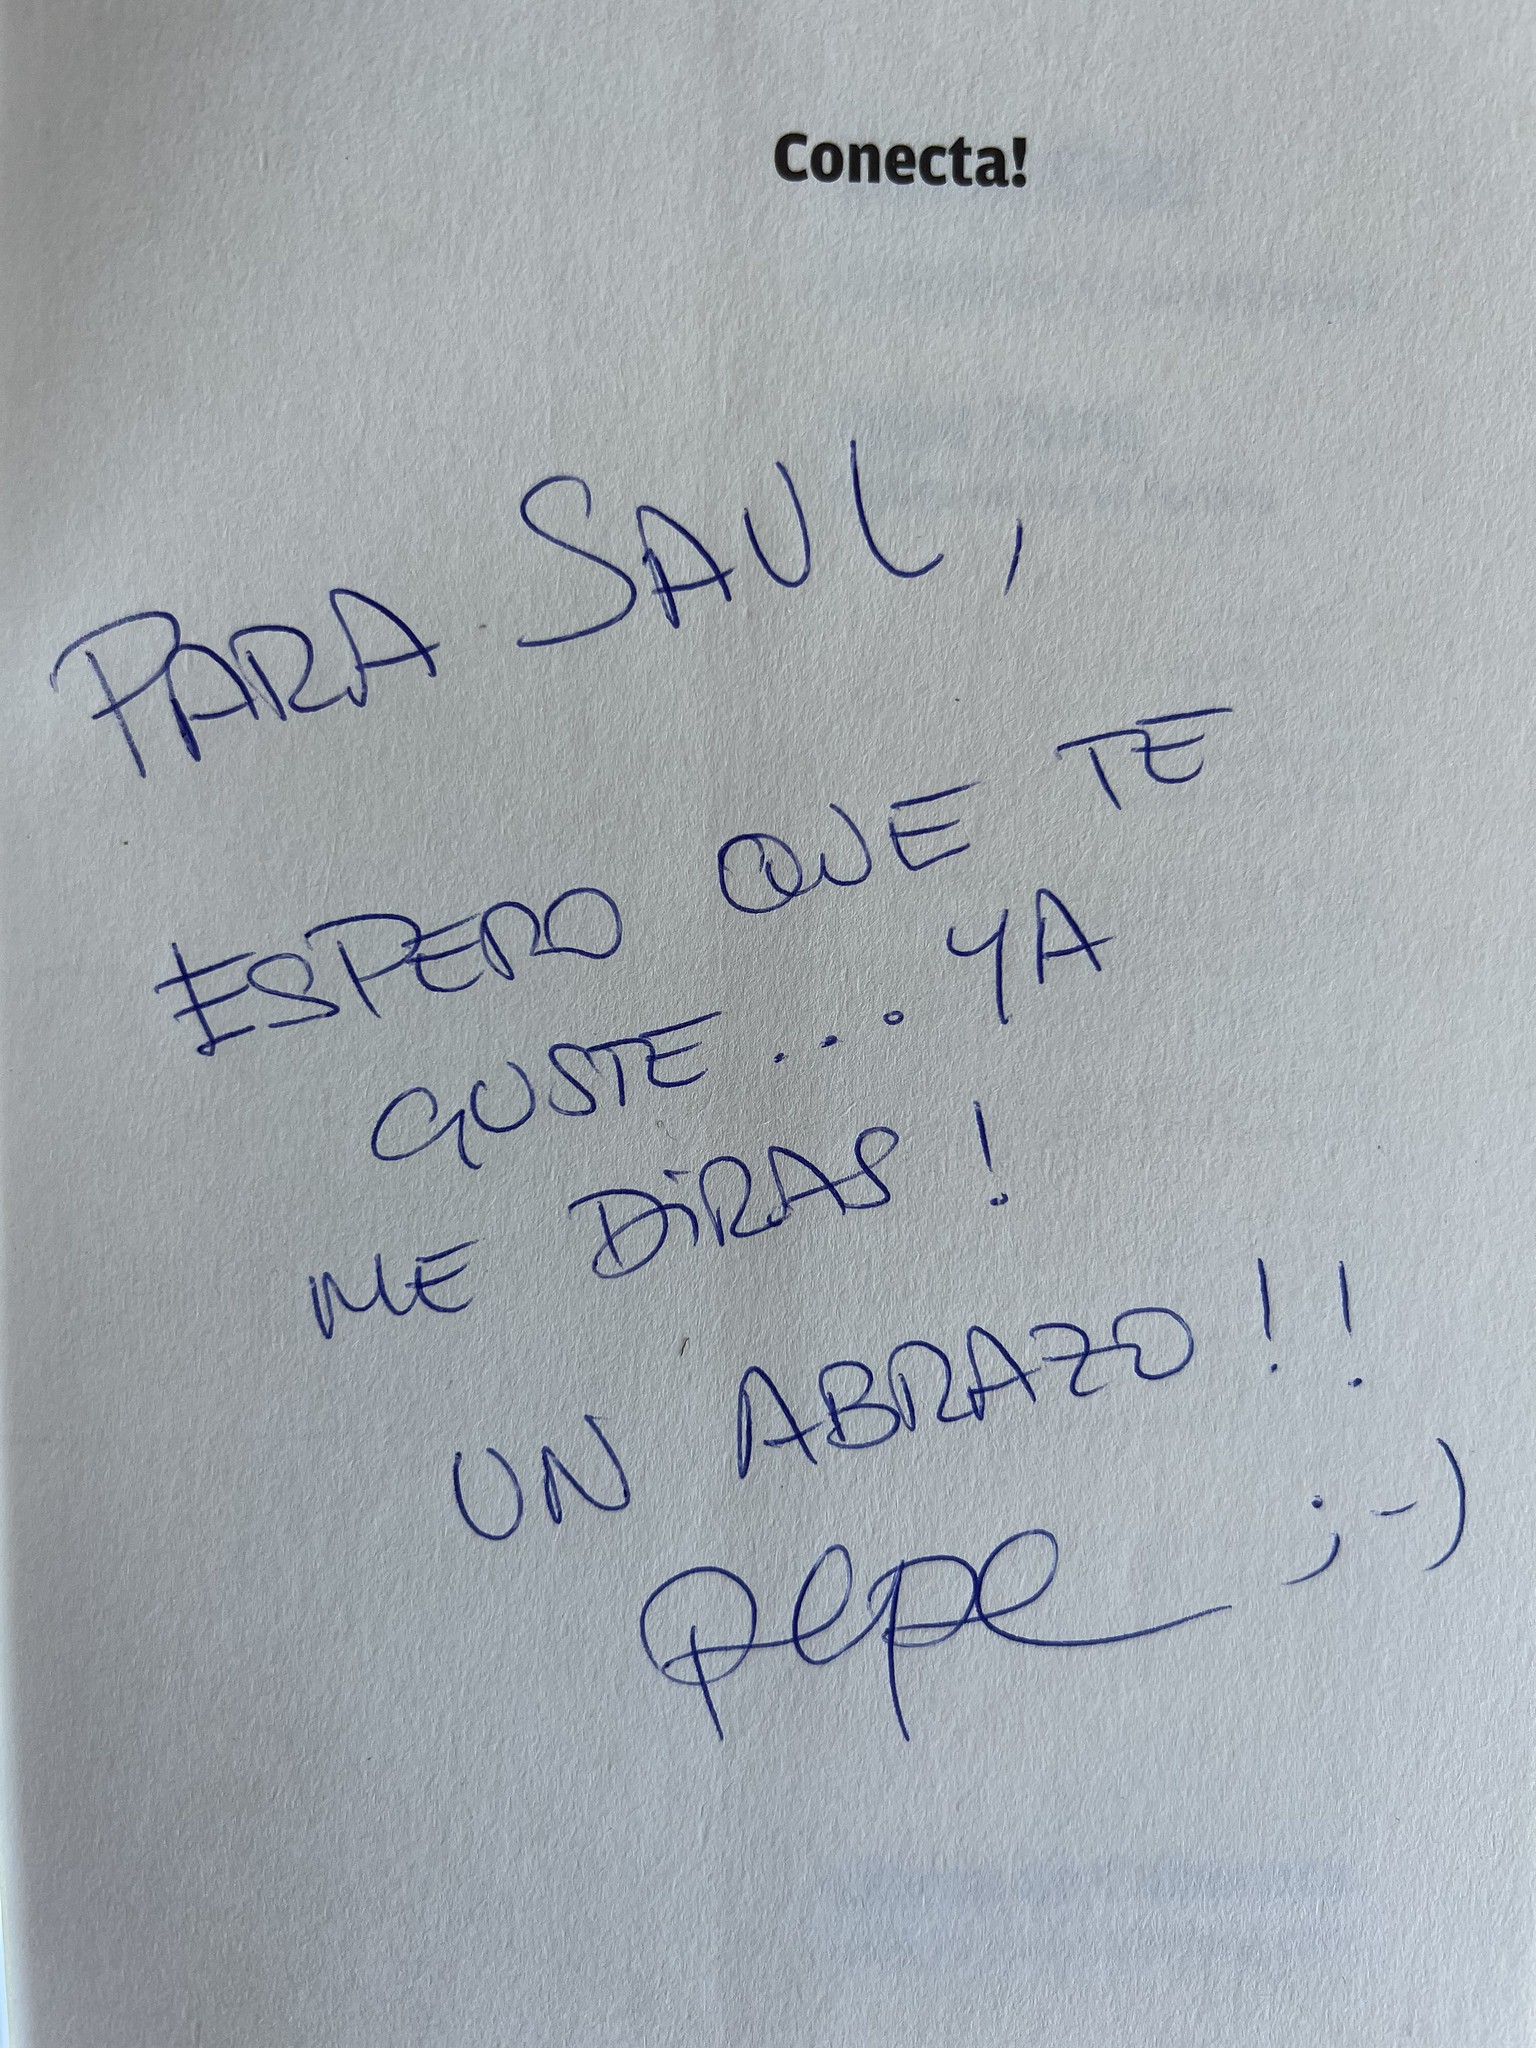 Conecta!
PARA SAUL,
ESPERO QUE TE
GUSTE... YA
ME DIRAS!
UN ABRAZO!!
Pepe ;-)